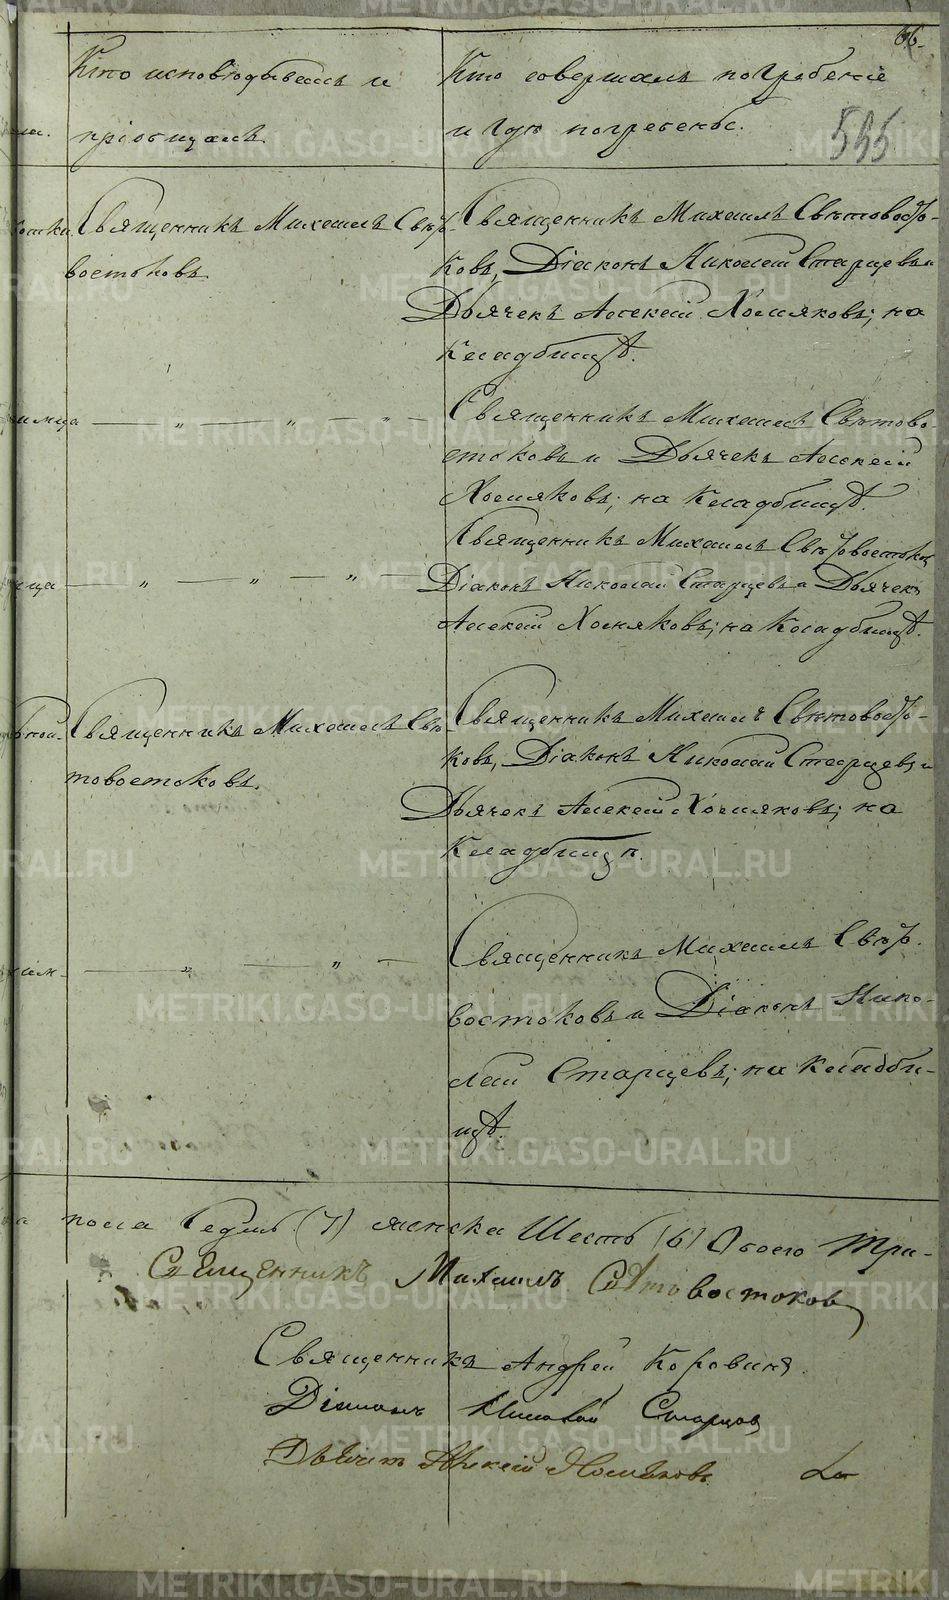 66.
595
Кто исповѣдывалъ и
пріобщалъ.
Кто совершалъ погребеніе
и гдѣ погребенъ.
Священникъ Михаилъ Свѣто-
востоковъ.
Священникъ Михаилъ Свѣтовосто-
ковъ, Діаконъ Николай Старцевъ и
Дьячекъ Алексій Хомяковъ; на
Кладбищѣ.
— „ — „ — „ —
Священникъ Михаилъ Свѣтово-
стоковъ и Дьячекъ Алексій
Хомяковъ; на Кладбищѣ.
— „ — „ — „ —
Священникъ Михаилъ Свѣтовостоковъ
Діаконъ Николай Старцевъ и Дьячекъ
Алексій Хомяковъ; на Кладбищѣ.
Священникъ Михаилъ Свѣ-
товостоковъ.
Священникъ Михаилъ Свѣтовосто-
ковъ, Діаконъ Николай Старцевъ и
Дьячекъ Алексій Хомяковъ; на
Кладбищѣ.
— „ — „ —
Священникъ Михаилъ Свѣто-
востоковъ и Діаконъ Нико-
лай Старцевъ; на кладби-
щѣ.
пола Седмь (7) женска Шесть (6) Обоего три-
Священникъ Михаилъ Свѣтовостоковъ
Священникъ Андрей Коровинъ.
Діаконъ Николай Старцовъ
Дьячекъ Алексій Хомяковъ
METRIKI.GASO-URAL.RU